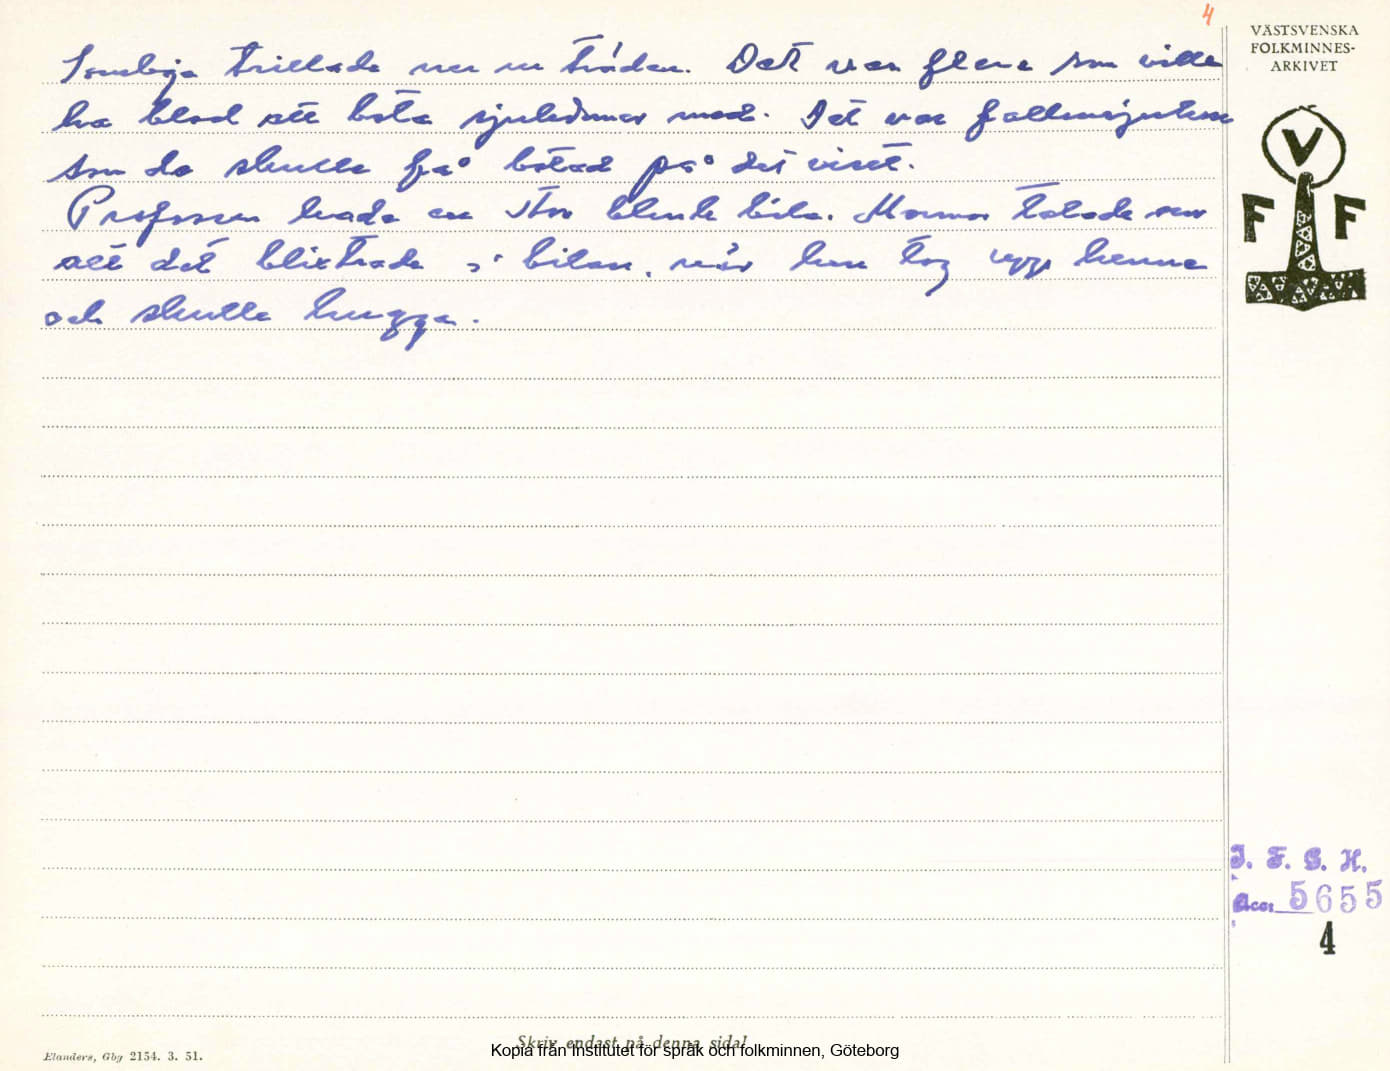 4
VÄSTSVENSKA
FOLKMINNES-
ARKIVET
V
F F
Somliga trillade ner ur träden. Det var flera som ville
ha blod att bota sjukdomar med. Det var fallensjuka
som de skulle få botad på det viset.
Profossen hade en stor blank bila. Mormor talade om
att det blixtrade i bilan, när han tog upp henne
och skulle hugga.
I. F. G. H.
Acc: 5655
4
Elanders, Gbg 2154. 3. 51.
Skriv endast på denna sida!
Kopia från Institutet för språk och folkminnen, Göteborg